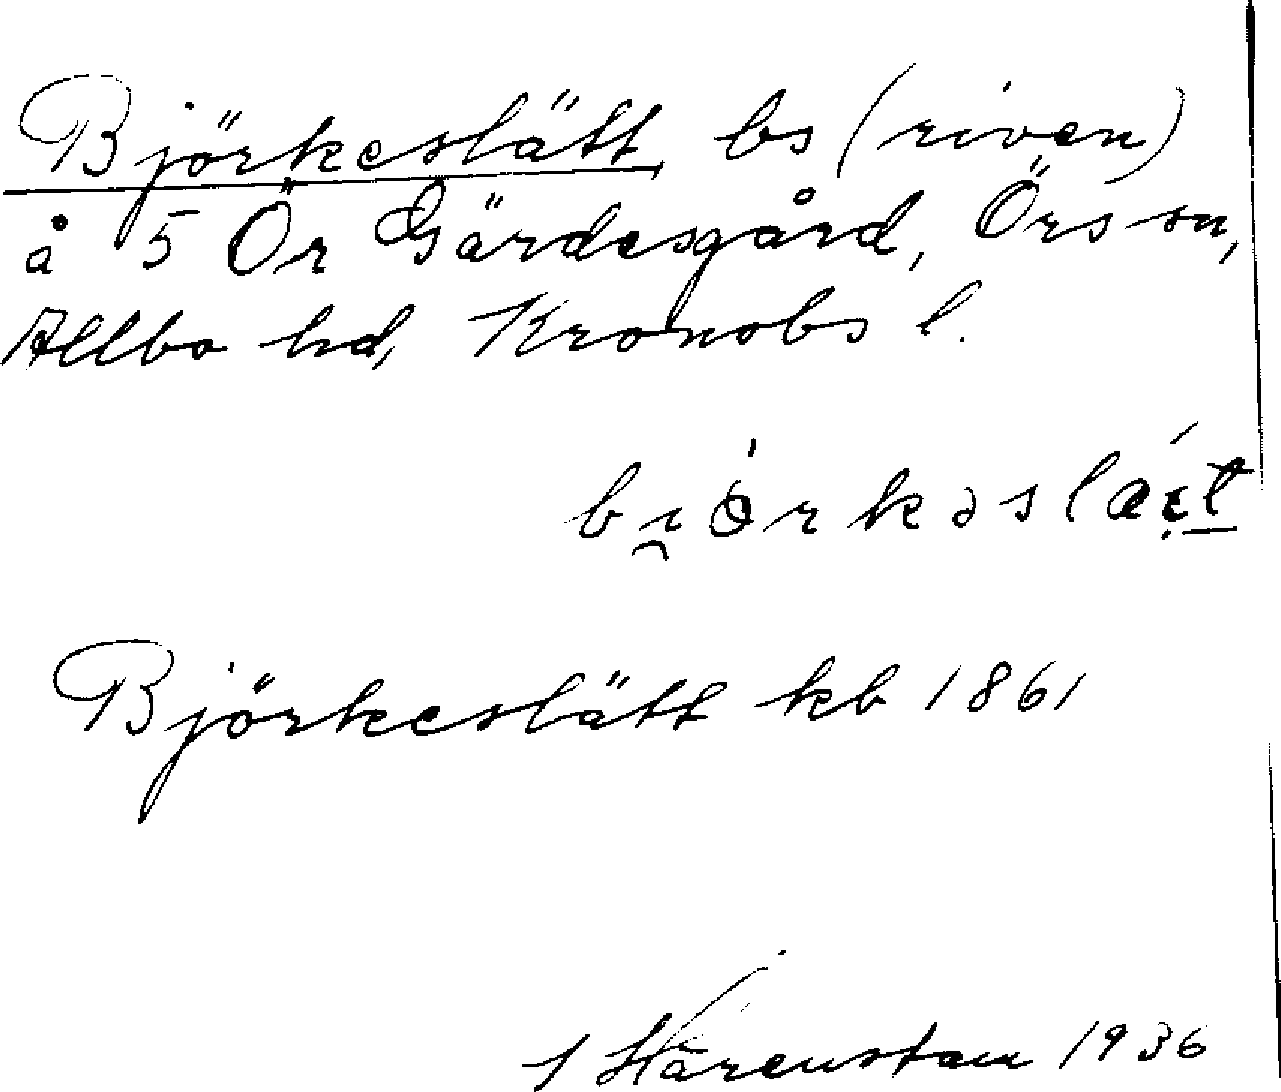 Björkeslätt bs (riven)
å 5 Ör Gärdesgård, Örs sn,
Allbo hd, Kronobs l.
Björkeslätt kb 1861
Härenstam 1936